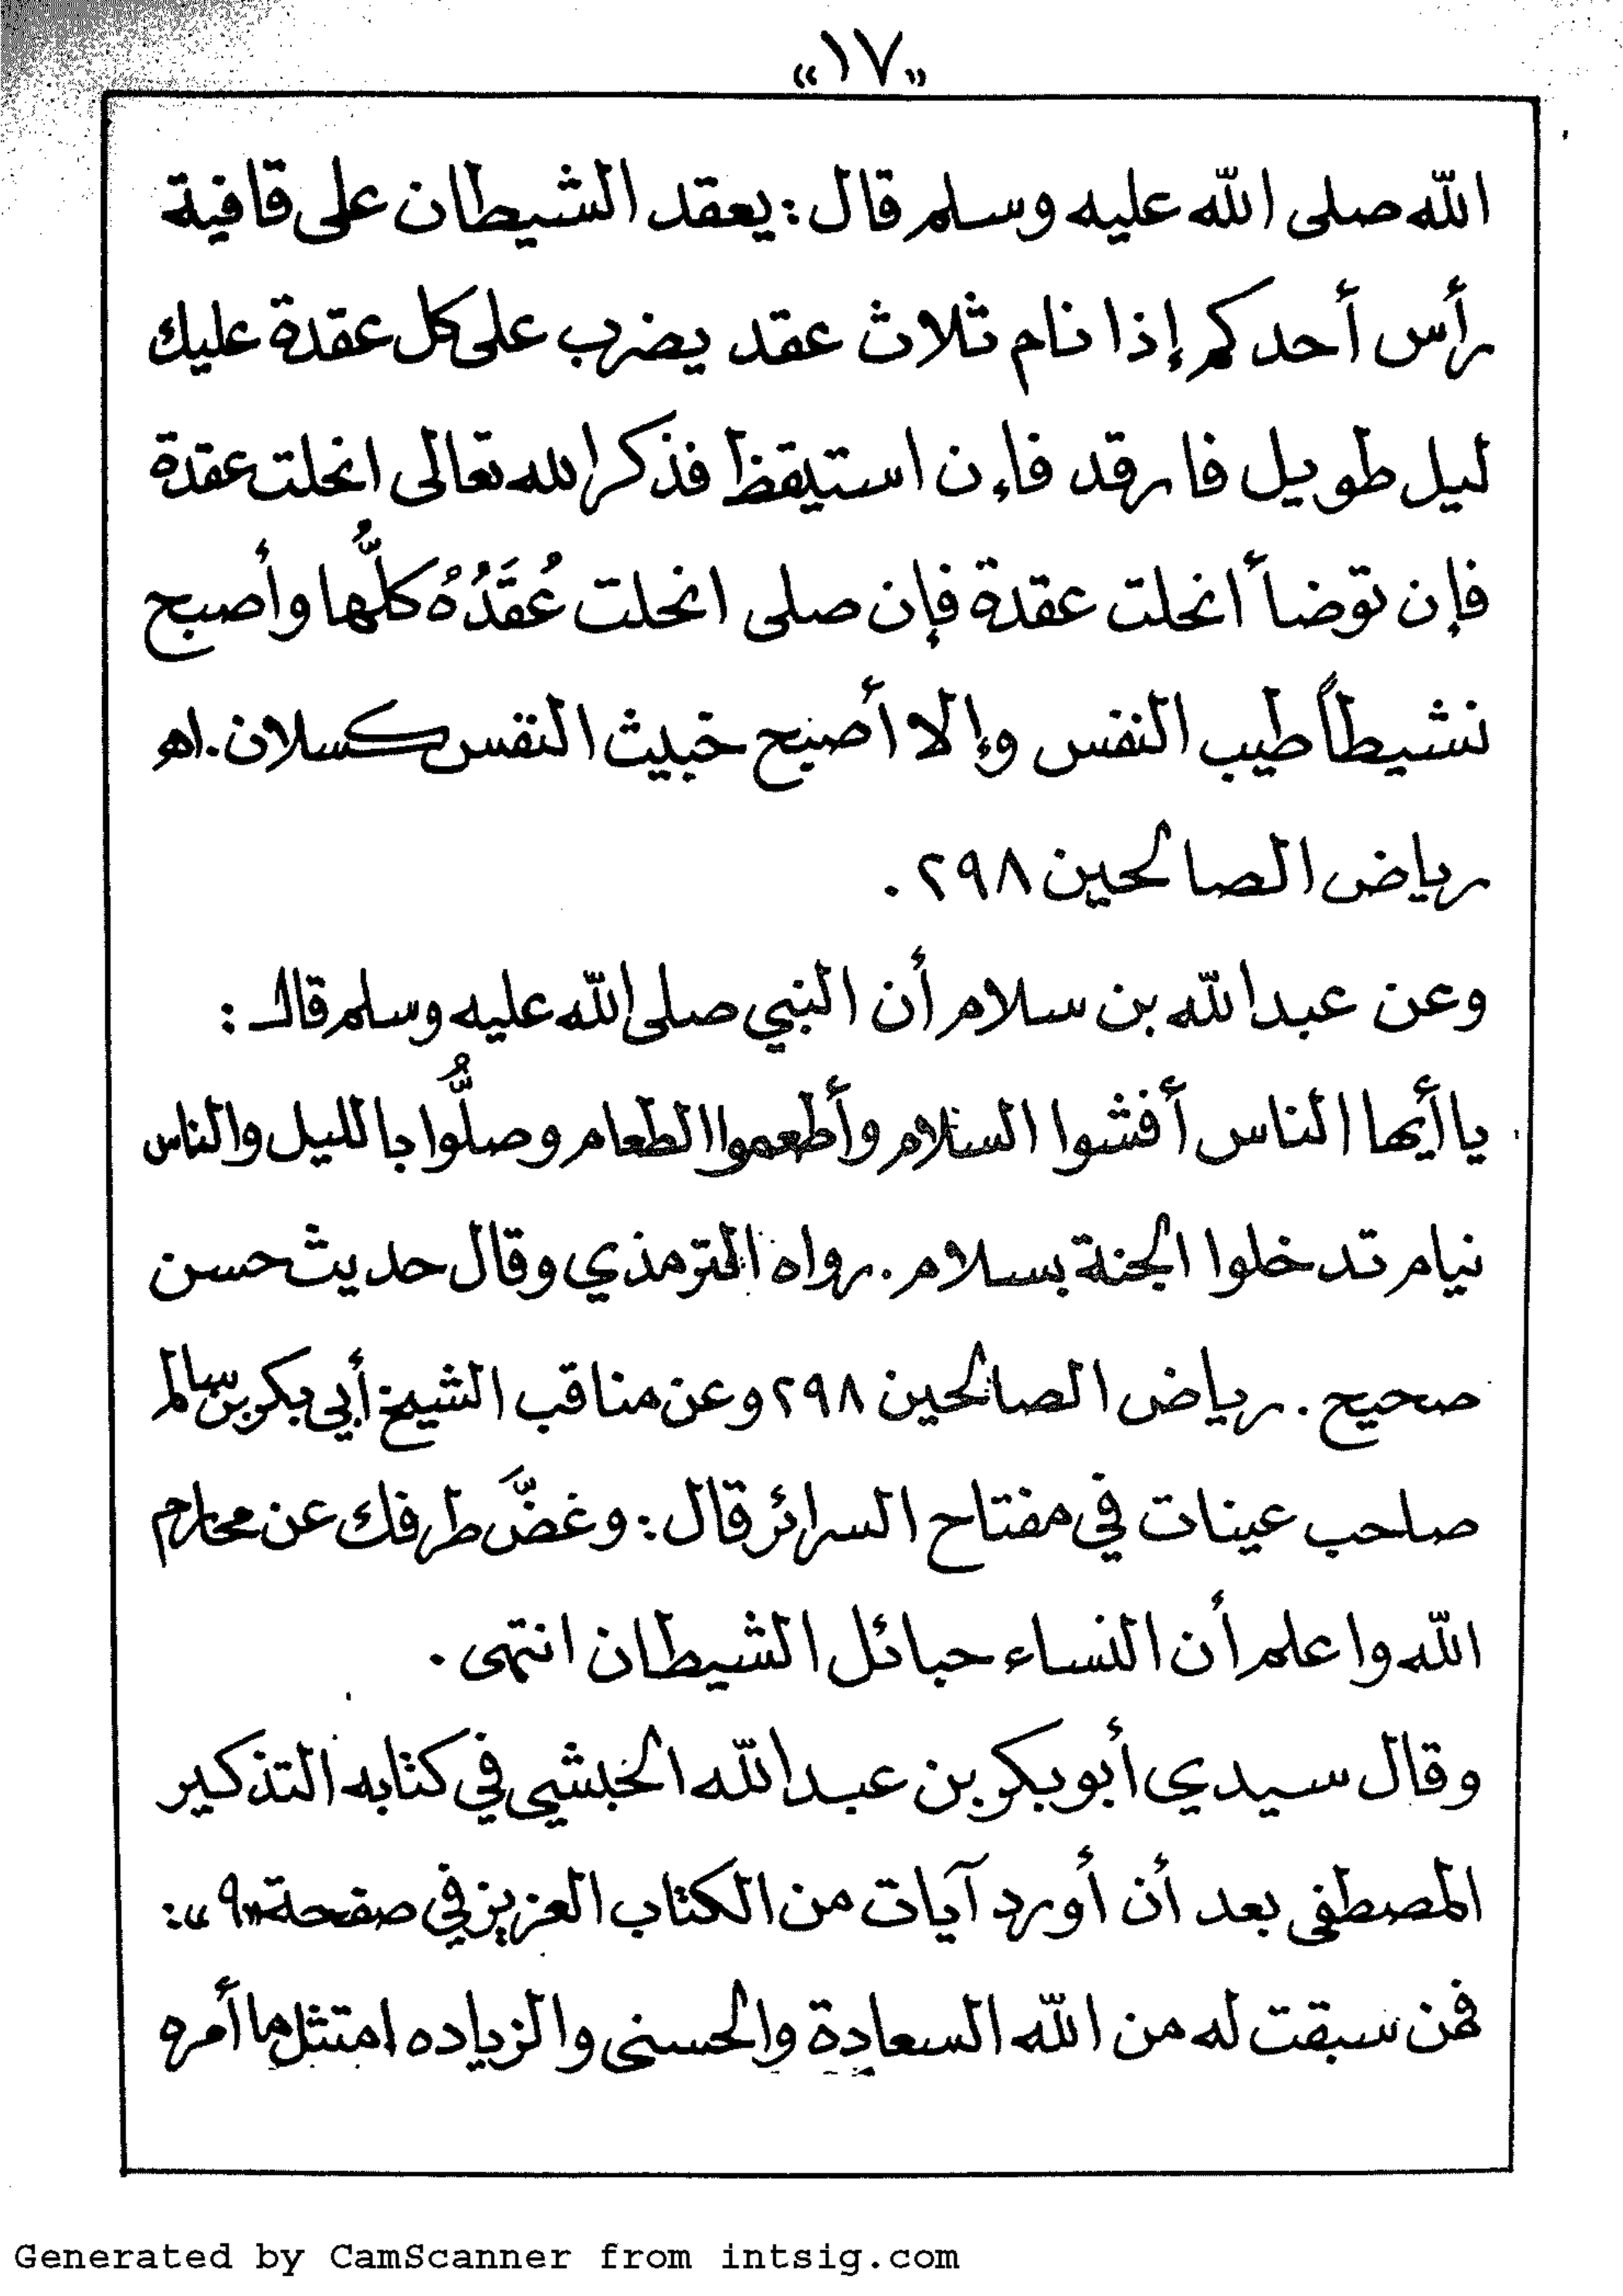 «١٧»
الله صلى الله عليه وسلم قال : يعقد الشيطان على قافية
رأس أحدكم إذا نام ثلاث عقد يضرب على كل عقدة عليك
ليل طويل فارقد فإن استيقظ فذكر الله تعالى انحلت عقدة
فإن توضأ انحلت عقدة فإن صلى انحلت عُقَدُهُ كلُّها وأصبح
نشيطاً طيب النفس وإلا أصبح خبيث النفس كسلان . اهـ
رياض الصالحين ٢٩٨ .
وعن عبد الله بن سلام أن النبي صلى الله عليه وسلم قال :
يا أيها الناس أفشوا السلام وأطعموا الطعام وصلُّوا بالليل والناس
نيام تدخلوا الجنة بسلام . رواه الترمذي وقال حديث حسن
صحيح . رياض الصالحين ٢٩٨ وعن مناقب الشيخ أبي بكر بن سالم
صاحب عينات في مفتاح السرائر قال : وغضَّ طرفك عن محارم
الله واعلم أن النساء حبائل الشيطان انتهى .
وقال سيدي أبو بكر بن عبد الله الحبشي في كتابه التذكير
المصطفى بعد أن أورد آيات من الكتاب العزيز في صفحة «٩» :
فمن سبقت له من الله السعادة والحسنى والزياده امتثل ما أمره
Generated by CamScanner from intsig.com